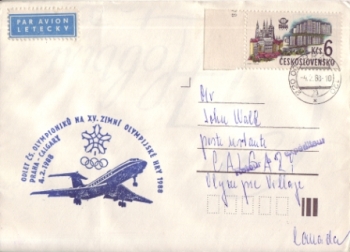 PAR AVION
LETECKY
Kčs 6
ČESKOSLOVENSKO
ODLET ČS. OLYMPIONIKŮ NA XV. ZIMNÍ OLYMPIJSKÉ HRY 1988
PRAHA - CALGARY
4.2.1988
Mr
John Wall
poste restante
CALGARY
Olympic Village
Canada